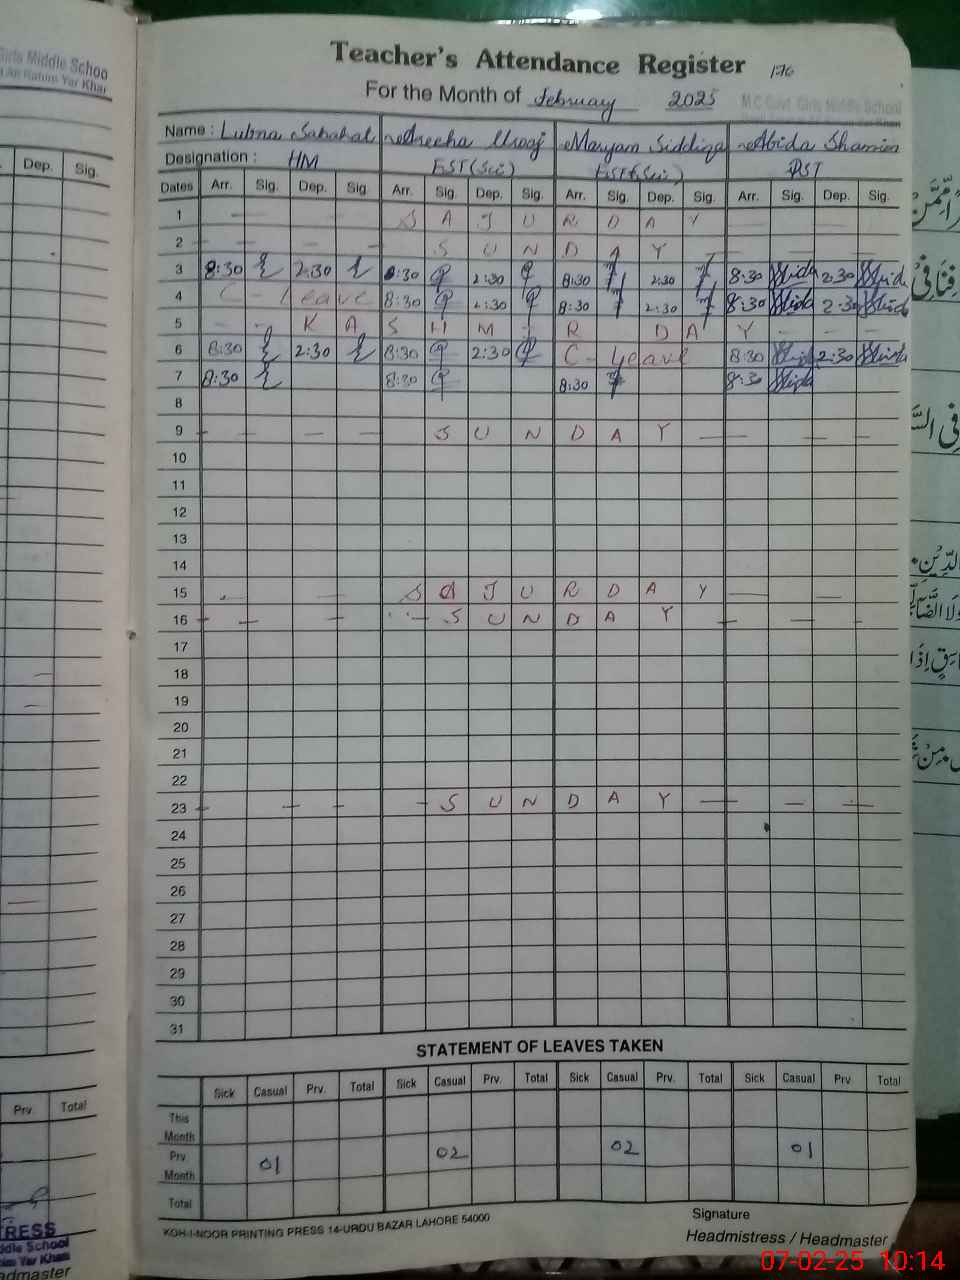 Girls Middle Schoo
Teacher's Attendance Register 176
For the Month of February 2025
M.C Govt. Girls Middle School
Name : Lubna Sabahat Areeha Urooj Maryam Siddiqa Abida Shamim
Designation : HM EST(Sci) EST(Sci) PST
Dep. Sig.
Dates Arr. Sig. Dep. Sig. Arr. Sig. Dep. Sig. Arr. Sig. Dep. Sig. Arr. Sig. Dep. Sig.
1 — — S A T U R D A Y — —
2 — — — — S U N D A Y — —
3 8:30 2:30 8:30 2:30 8:30 2:30 8:30 2:30
4 C - Leave 8:30 2:30 8:30 2:30 8:30 2:30
5 - - K A S H M I R D A Y — — —
6 8:30 2:30 8:30 2:30 C - Leave 8:30 2:30
7 8:30 8:30 8:30 8:3
8
9 — — — — S U N D A Y — — —
10
11
12
13
14
15 — — S A T U R D A Y — —
16 — — — — S U N D A Y — — —
17
18
19
20
21
22
23 — — — — S U N D A Y — — —
24
25
26
27
28
29
30
31
STATEMENT OF LEAVES TAKEN
Prv. Total
Sick Casual Prv. Total Sick Casual Prv. Total Sick Casual Prv. Total Sick Casual Prv Total
This Month
Prv Month 01 02 02 01
Total
KOH-I-NOOR PRINTING PRESS 14-URDU BAZAR LAHORE 54000
Signature
Headmistress / Headmaster
RESS
ddle School
im Yar Khan
admaster
07-02-25 10:14